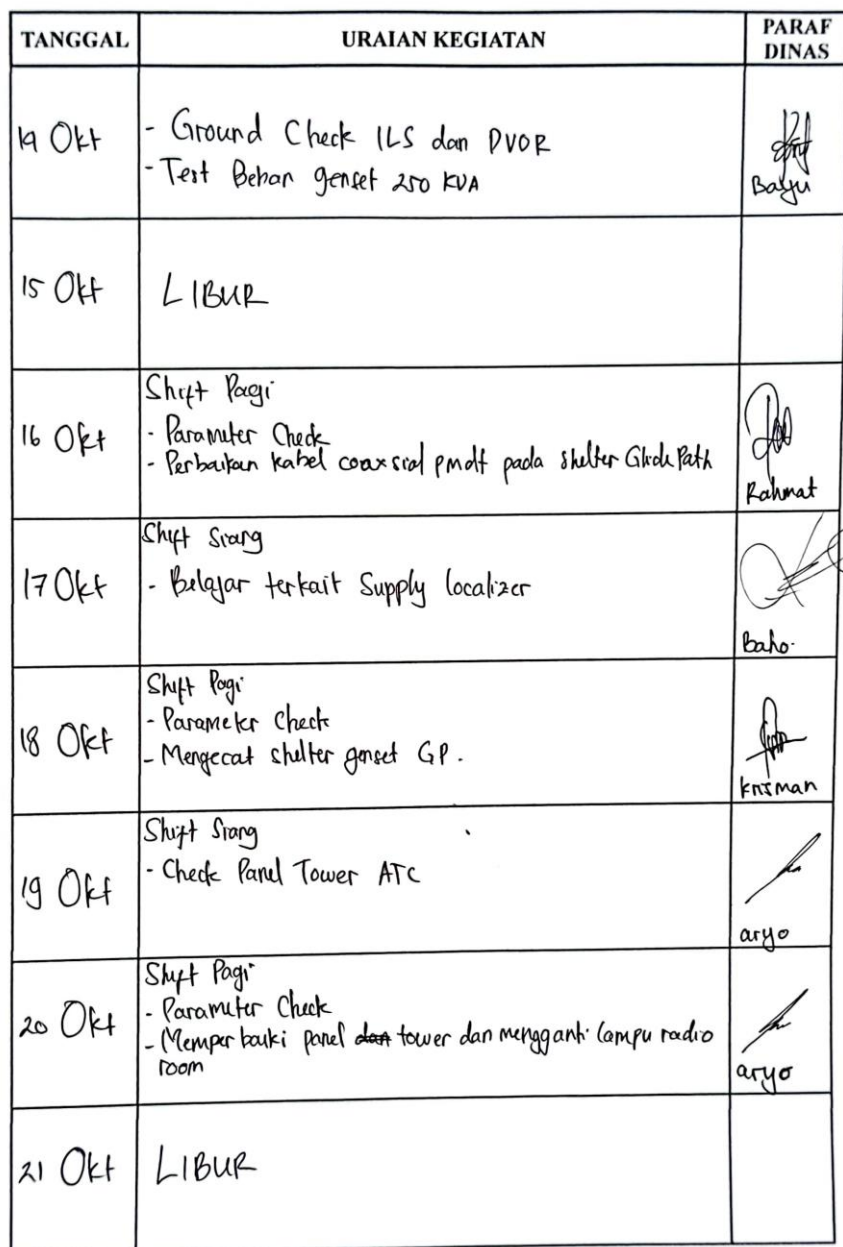 TANGGAL URAIAN KEGIATAN PARAF DINAS
14 Okt
- Ground Check ILS dan DVOR
- Test Beban genset 250 KVA
Bayu
15 Okt LIBUR
Shift Pagi
16 Okt
- Parameter Check
- Perbaikan kabel coaxsial pmdt pada shelter Glide Path
Rahmat
Shift Siang
17 Okt
- Belajar terkait Supply localizer
Baho.
Shift Pagi
18 Okt
- Parameter Check
- Mengecat shelter genset GP.
Krisman
Shift Siang
19 Okt
- Check Panel Tower ATC
aryo
Shift Pagi
20 Okt
- Parameter Check
- Memperbaiki panel dan tower dan mengganti lampu radio
room
aryo
21 Okt LIBUR